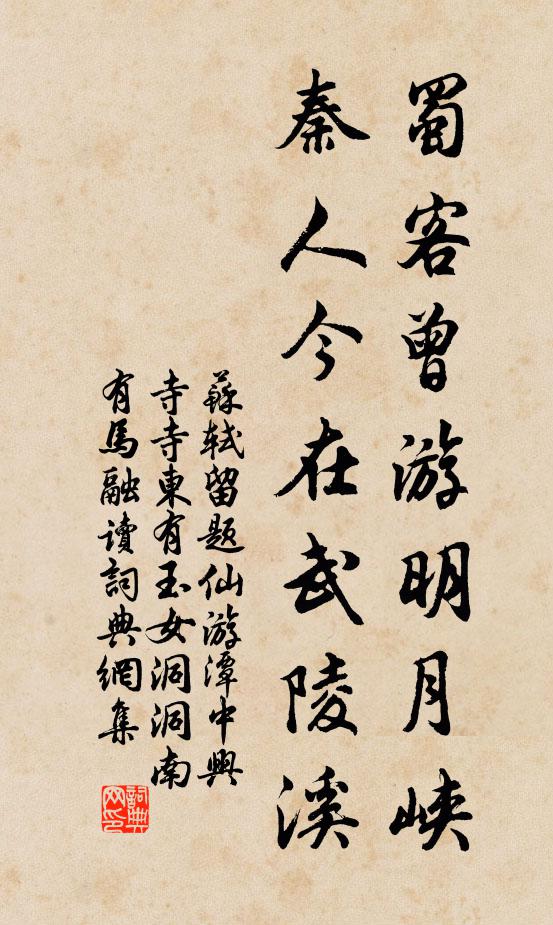 蜀客曾游明月峡
秦人今在武陵溪
蘇軾留題仙游潭中興
寺寺東有玉女洞洞南
有馬融讀詞典網集
詞典网印